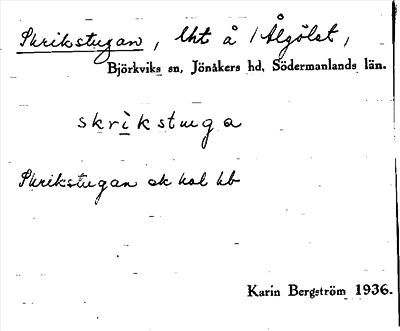 Skrikstugan, lht å /Ålgölet,
Björkviks sn, Jönåkers hd, Södermanlands län.
skrikstuga
Skrikstugan ek kbl hb
Karin Bergström 1936.